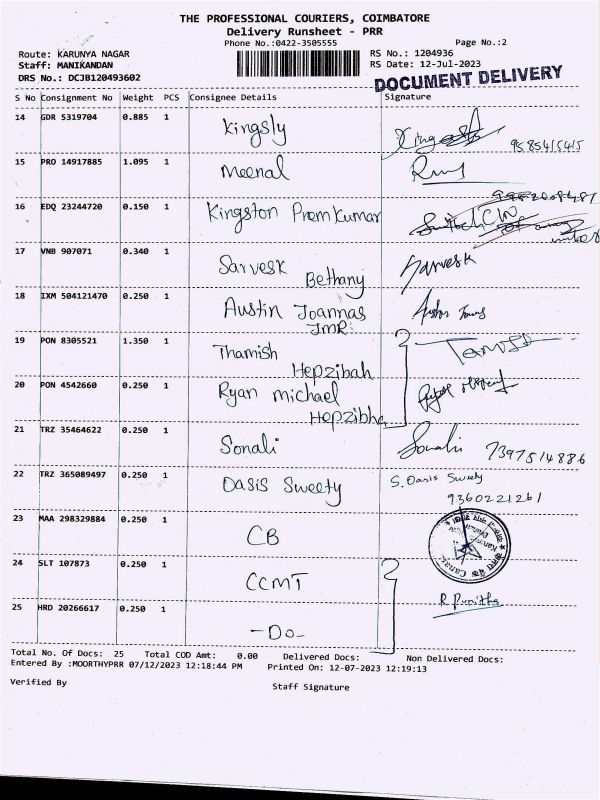 THE PROFESSIONAL COURIERS, COIMBATORE
Delivery Runsheet - PRR
Phone No.:0422-3505555 Page No.:2
Route: KARUNYA NAGAR RS No.: 1204936
Staff: MANIKANDAN RS Date: 12-Jul-2023
DRS No.: DCJB120493602 DOCUMENT DELIVERY
S No Consignment No Weight PCS Consignee Details Signature
14 GDR 5319704 0.885 1 Kingsly 9585415415
15 PRO 14917885 1.095 1 Meenal
16 EDQ 23244720 0.150 1 Kingston Premkumar
17 VNB 907071 0.340 1 Sarvesk Bethany Sarvesk
18 IXM 504121470 0.250 1 Austin Joannas
JMR
19 PON 8305521 1.350 1 Thamish
Hepzibah
20 PON 4542660 0.250 1 Ryan michael
Hepzibha
21 TRZ 35464622 0.250 1 Sonali Sonali 7397514886
22 TRZ 365089497 0.250 1 Oasis Sweety S. Oasis Sweety
9360221261
23 MAA 298329884 0.250 1 CB
24 SLT 107873 0.250 1 CCMT
R Punitha
25 HRD 20266617 0.250 1 -Do-
Total No. Of Docs: 25 Total COD Amt: 0.00 Delivered Docs: Non Delivered Docs:
Entered By :MOORTHYPRR 07/12/2023 12:18:44 PM Printed On: 12-07-2023 12:19:13
Verified By Staff Signature